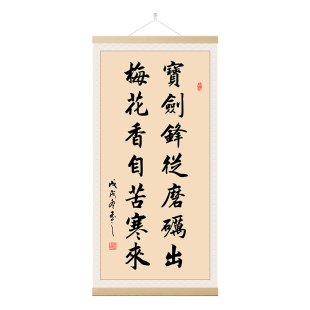 寶劍鋒從磨礪出
梅花香自苦寒來
戊戌冬